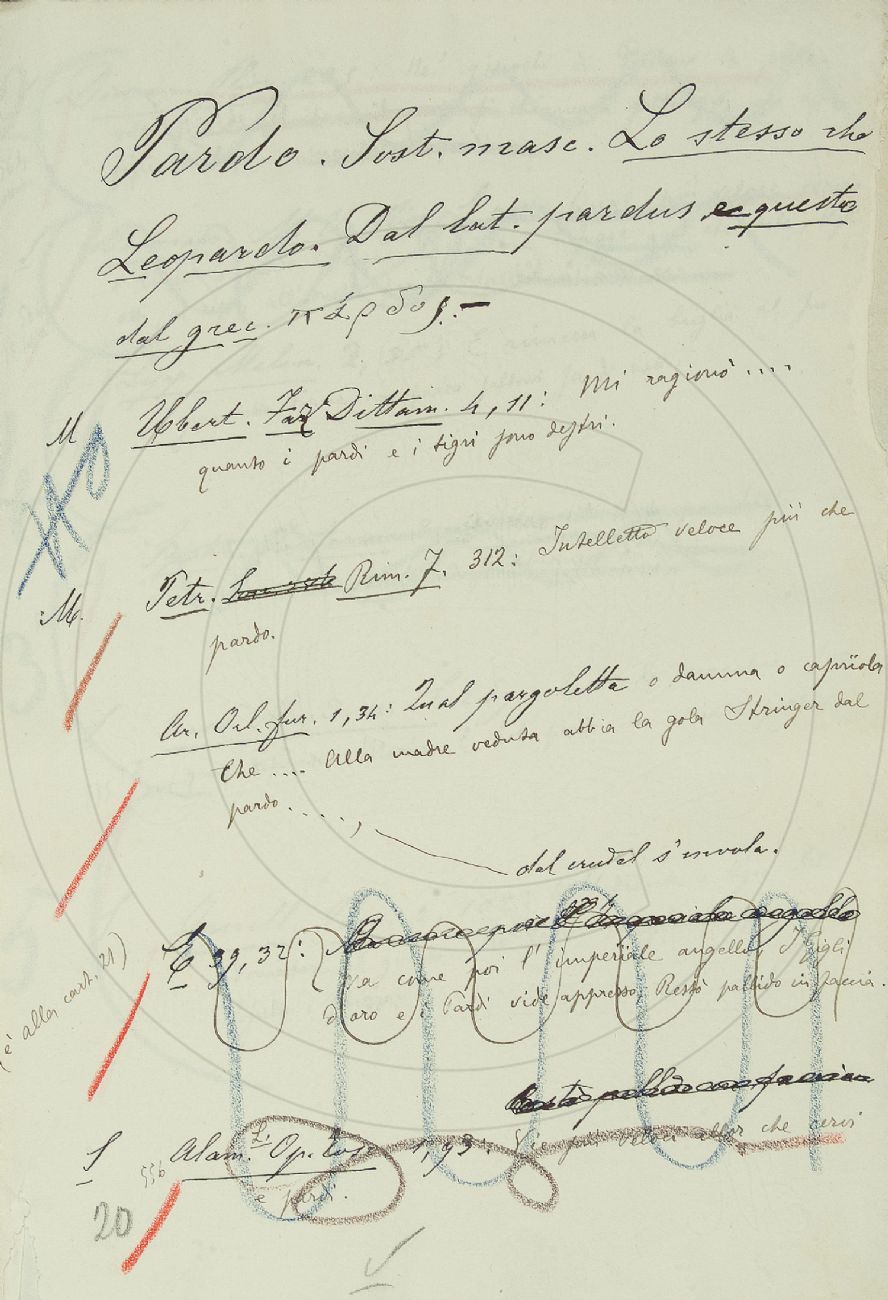 Pardo. Sost. masc. Lo stesso che
Leopardo. Dal lat. pardus e questo
dal grec. πάρδος.-
M Ubert. Faz. Dittam. 4, 11: Mi ragionò ....
quanto i pardi e i tigri sono destri.
M. Petr. Rim. 7. 312: Intelletto veloce più che
pardo.
Ar. Orl. fur. 1, 34: Qual pargoletta o damma o caprïola
Che .... Alla madre veduta abbia la gola Stringer dal
pardo....,
dal crudel s'invola.
E 39, 32: Ma come poi l'imperïale augello, I Gigli
d'oro e i Pardi vide appresso, Restò pallido in faccia.
(è alla cart. 21)
S 556 Alam. L. Op. tosc. 1, 93: Vie più veloci allor che cervi
e pardi.
20